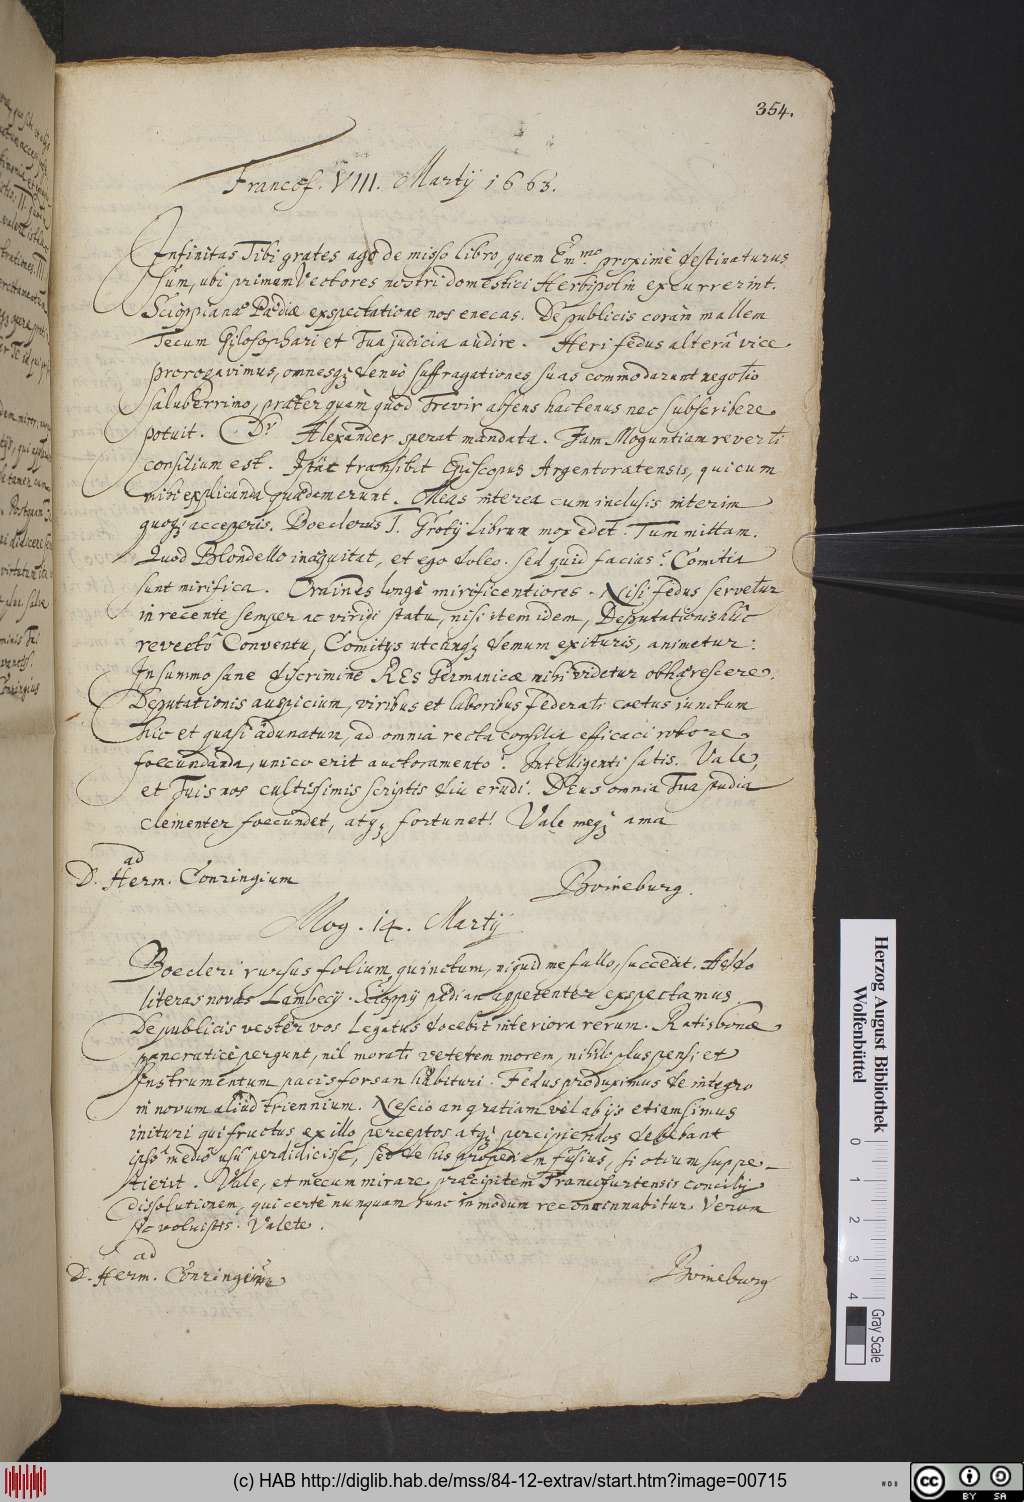 354.
Francof. VIII. Martij 1663.
Infinitas Tibi grates ago de misso libro, quem Em.mo proximè destinaturus
sum, ubi primum Vectores nostri domestici Herbipolin excurrerint.
Scioppianae Paediae exspectatione nos enecas. De publicis coràm mallem
Tecum philosophari et Tua judicia audire. Heri fedus alterâ vice
prorogavimus, omnesq; denuò suffragationes suas commodarunt negotio
saluberrimo, praeter quam quod Trevir absens hactenus nec subscribere
potuit. Dr Alexander sperat mandata. Jam Moguntiam reverti
consilium est. Istac transibit Episcopus Argentoratensis, qui cum
mihi explicanda quaedam erunt. Meas interea cum inclusis interim
quoq; acceperis. Boeclerus I. Grotij Librum mox edet. Tum mittam.
Quod Blondello inaequitat, et ego doleo. sed quid facias? Comitia
sunt mirifica. Ordines longè mirificentiores. Nisi fedus servetur
in recente semper ac viridi statu, nisi item idem, Deputationis hûc
revectô Conventu, Comitijs utcunq; demum exituris, animetur:
In summo sane discrimine REs Germanicae mihi videtur obhaerescere.
Deputationis auspicium, viribus et laboribus federati coetus iunctum
hic et quasi adunatum, ad omnia recta consilia efficaci robore
foecundanda, unico erit auctoramento. Intelligenti satis. Vale,
et Tuis nos cultissimis scriptis diu erudi. DEus omnia Tua studia
clementer foecundet, atq; fortunet! Vale meq; ama
ad
D. Herm. Conringium
Boineburg.
Mog. 14. Martij
Boecleri rursus folium, quinctum, ni quid me fallo, succedit. Addo
literas novas Lambecij. Scioppij paediam appetenter exspectamus.
De publicis vester vos Legatus docebit interiora rerum. Ratisbonae
pancraticè pergunt, nil morati veterem morem, nihilo plus pensi et
Instrumentum pacis forsan habituri. Fedus produximus de integro
in novum aliud triennium. Nescio an gratiam vel ab ijs etiam simus
inituri qui fructus ex illo perceptos atq; percipiendos debebant
ipso medio usu perdidicisse, sed de his propediem fusius, si otium suppe-
tierit. Vale, et mecum mirare praecipitem Francofurtensis concilij
dissolutionem, qui certè nunquam hunc in modum reconcinnabitur. Verum
sic voluistis. Valete.
ad
D. Herm. Conringium
Boineburg
Herzog August Bibliothek
Wolfenbüttel
0 1 2 3 4
Gray Scale
(c) HAB http://diglib.hab.de/mss/84-12-extrav/start.htm?image=00715
cc BY SA